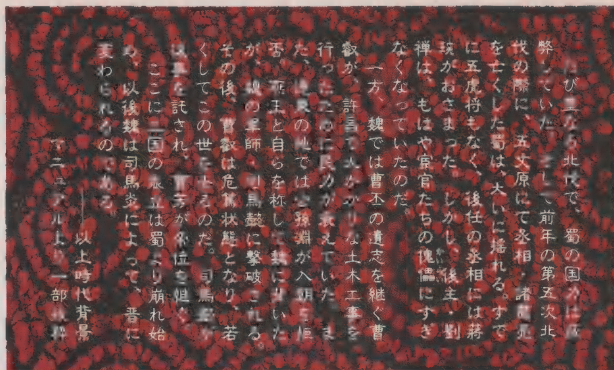 び重なる北伐で、蜀の国力は疲
弊していた。そして前年の第五次北
伐の際に、五丈原にて丞相・諸葛亮
を亡くした蜀は、大いに揺れる。すで
に五虎将もなく、後任の丞相には蒋
琬がおさまった。しかし、後主・劉
禅は、もはや宦官たちの傀儡にすぎ
なくなっていたのだ。
一方、魏では曹丕の遺志を継ぐ曹
叡が、許昌で大がかりな土木工事を
行ったために民力が衰えていた。ま
た、の地では公孫淵が入朝を拒
否、燕王と自らを称し、魏にいた
が、魏の軍師、司馬懿に撃破される。
その後、曹叡は危篤状態となり、若
くしてこの世をるのだ。司馬が
後事を託され、曹芳が帝位を
ここに三国の鼎立は蜀より崩れ始
め、以後魏は司馬炎によって、晋に
変わられるのである。
――以上時代背景
マニュアルより一部抜粋